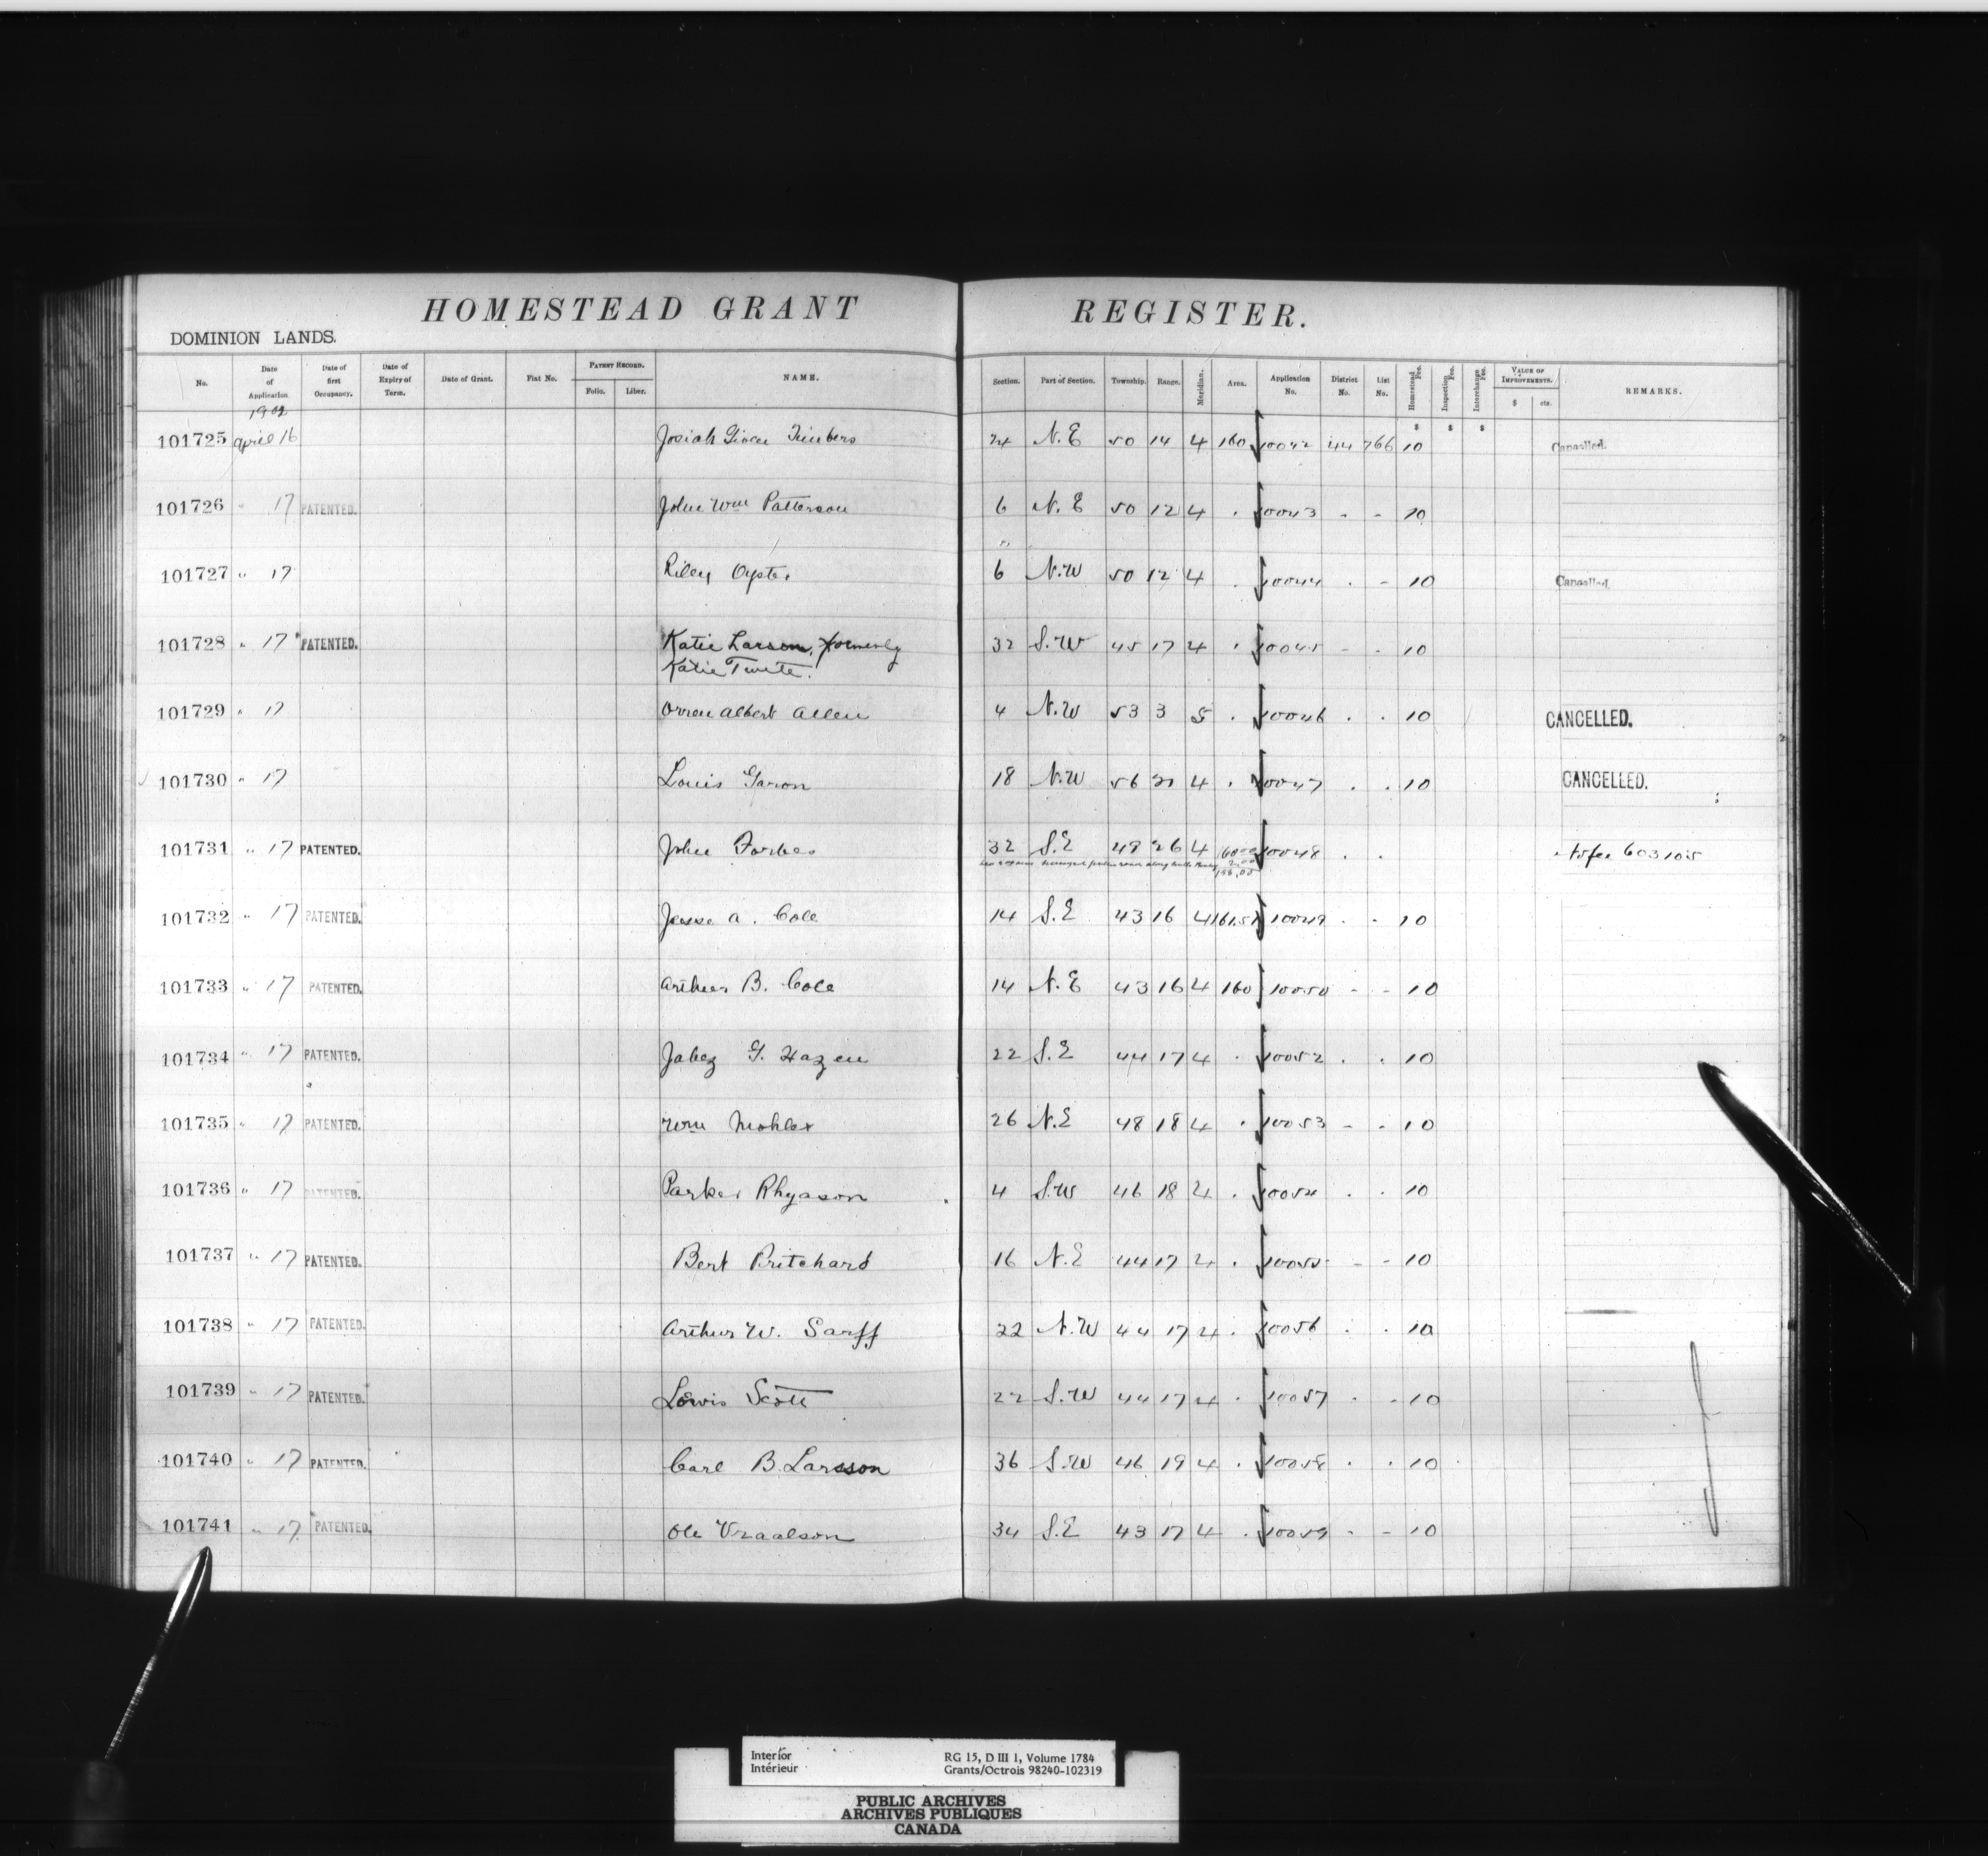 HOMESTEAD GRANT REGISTER.
DOMINION LANDS.
No. Date of Application Date of first Occupancy. Date of Expiry of Term. Date of Grant. Fiat No. PATENT RECORD. Folio. Liber. NAME. Section. Part of Section. Township. Range. Meridian. Area. Application No. District No. List No. Homestead Fee. Inspection Fee. Interchange Fee. VALUE OF IMPROVEMENTS. $ cts. REMARKS.
1902
$ $ $
101725 April 16 Josiah N.E 50 14 4 160 10042 44 766 10 Cancelled.
101726 " 17 PATENTED. John Wm Patterson 6 N.E 50 12 4 . 10043 - - 10
101727 " 17 Riley Oyster 6 N.W 50 12 4 . 10044 . - 10 Cancelled
101728 " 17 PATENTED. Katie Larson, formerly 32 S.W 45 17 4 . 10045 - - 10
Katie Twete.
101729 " 17 Orren Albert Allen 4 N.W 53 3 5 . 10046 . . 10 CANCELLED.
101730 " 17 Louis Garon 18 N.W 56 21 4 . 10047 . . 10 CANCELLED.
101731 " 17 PATENTED. John Forbes 32 S.E 49 26 4 160.00 10048 . . 603105
2.00
158.00
101732 " 17 PATENTED. Jesse A. Cole 14 S.E 43 16 4 161.51 10049 . - 10
101733 " 17 PATENTED. Arthur B. Cole 14 N.E 43 16 4 160 10050 - - 10
101734 " 17 PATENTED. Jabez G. Hazen 22 S.E 44 17 4 . 10052 . . 10
101735 " 17 PATENTED. Wm Mohler 26 N.E 48 18 4 . 10053 - - 10
101736 " 17 PATENTED. Parker Rhyason 4 S.W 46 18 4 . 10054 . . 10
101737 " 17 PATENTED. Bert Pritchard 16 N.E 44 17 4 . 10055 - - 10
101738 " 17 PATENTED. Arthur W. Sarff 22 N.W 44 17 4 . 10056 . . 10
101739 " 17 PATENTED. Lewis Scott 22 S.W 44 17 4 . 10057 . - 10
101740 " 17 PATENTED. Carl B. Larsson 36 S.W 46 19 4 . 10058 . . 10
101741 " 17 PATENTED. Ole Vraalson 34 S.E 43 17 4 . 10059 - - 10
Interior RG 15, D III 1, Volume 1784
Intérieur Grants/Octrois 98240-102319
PUBLIC ARCHIVES
ARCHIVES PUBLIQUES
CANADA